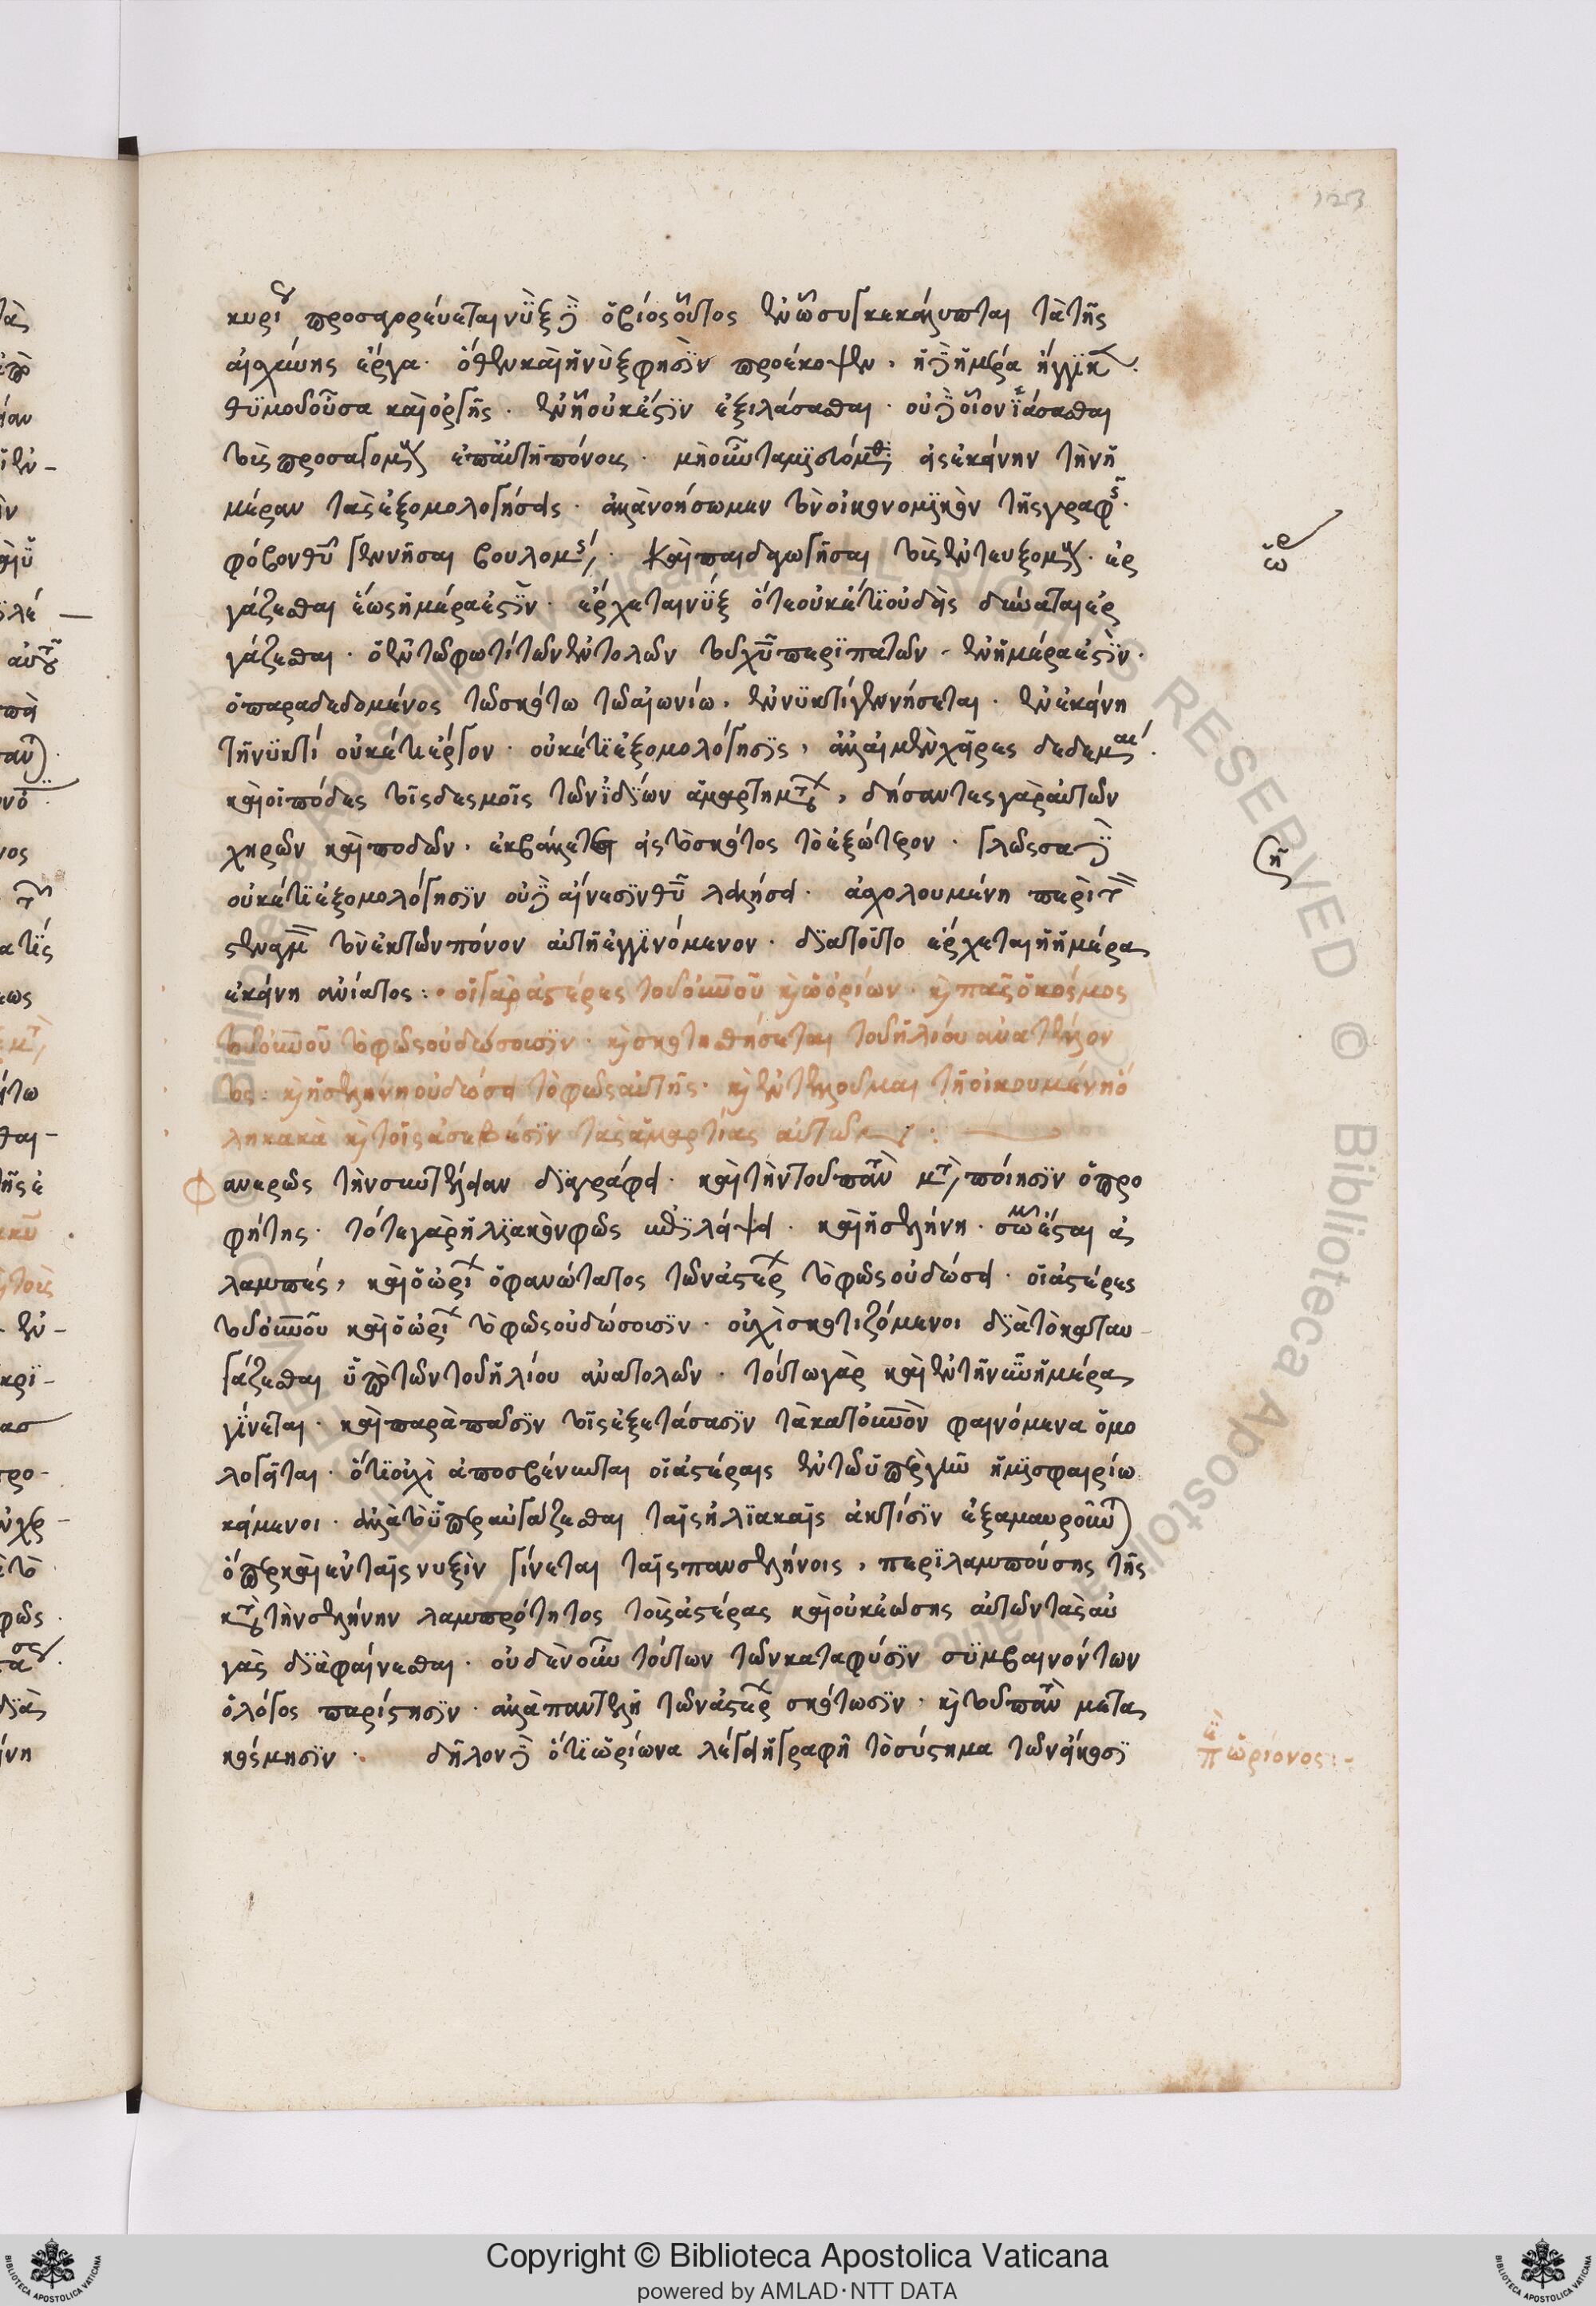 123
κυρίου προσαγορεύεται νὺξ δὲ ὁ βίος οὗτος ἐν ᾧ συγκεκάλυπται τὰ τῆς
αἰσχύνης ἔργα· ὅθεν καὶ ἡ νὺξ φησὶν προέκοψεν, ἡ δὲ ἡμέρα ἤγγικεν·
θυμοῦ οὖσα καὶ ὀργῆς· ἐν ᾗ οὐκ ἔστιν ἐξιλάσασθαι· οὐδὲ οἷον ἰάσασθαι
τοὺς προσαγομένους ἐπ' αὐτῇ πόνους· μὴ οὖν ταμιευώμεθα εἰς ἐκείνην τὴν ἡ
μέραν τὰς ἐξομολογήσεις· ἀλλὰ νοήσωμεν τὸν οἰκονομικὸν τῆς γραφῆς·
φόβον θεοῦ γεννῆσαι βουλομένης· καὶ παιδαγωγῆσαι τοὺς ἐντευξομένους· ἐρ
γάζεσθαι ἕως ἡμέρα ἐστίν· ἔρχεται νὺξ ὅτε οὐκέτι οὐδεὶς δύναται ἐρ
γάζεσθαι· ὁ ἐν τῷ φωτὶ τῶν ἐντολῶν τοῦ χριστοῦ περιπατῶν· ἐν ἡμέρα ἐστίν·
ὁ παραδεδομένος τῷ σκότω τῷ αἰωνίω, ἐν νυκτὶ γεννήσεται· ἐν ἐκείνη
τῇ νυκτὶ οὐκέτι ἔργον· οὐκέτι ἐξομολόγησις, ἀλλ' αἱ μὲν χεῖρες δεδεμέναι·
καὶ οἱ πόδες τοῖς δεσμοῖς τῶν ἰδίων ἁμαρτημάτων, δήσαντες γὰρ αὐτῶν
χειρῶν καὶ ποδῶν, ἐκβάλετε εἰς τὸ σκότος τὸ ἐξώτερον· γλῶσσα δὲ
οὐκέτι ἐξομολόγησιν οὐδὲ αἴνεσιν θεοῦ λαλήσει· ἀσχολουμένη περὶ τὸν
στεναγμὸν τὸν ἐκ τῶν πόνων αὐτῇ ἐγγινόμενον· διὰ τοῦτο ἔρχεται ἡ ἡμέρα
ἐκείνη ἀνίατος:· οἱ γὰρ ἀστέρες τοῦ οὐρανοῦ καὶ ὁ ὠρίων· καὶ πᾶς ὁ κόσμος
τοῦ οὐρανοῦ τὸ φῶς οὐ δώσουσιν· καὶ σκοτισθήσεται τοῦ ἡλίου ἀνατέλλον
τος· καὶ ἡ σελήνη οὐ δώσει τὸ φῶς αὐτῆς· καὶ ἐντελοῦμαι τῇ οἰκουμένη ὅ
λη κακὰ καὶ τοῖς ἀσεβέσιν τὰς ἁμαρτίας αὐτῶν:
Φανερῶς τὴν συντέλειαν διαγράφει· καὶ τὴν τοῦ παντὸς μεταποίησιν ὁ προ
φήτης· τότε γὰρ ἡλιακὸν φῶς οὐκ ἐκλάμψει· καὶ ἡ σελήνη ἔσται ἀ
λαμπής, καὶ ὁ ὠρίων ὁ φανώτατος τῶν ἀστέρων τὸ φῶς οὐ δώσει· οἱ ἀστέρες
τοῦ οὐρανοῦ καὶ ὁ ὠρίων τὸ φῶς οὐ δώσουσιν· οὐχὶ σκοτιζόμενοι διὰ τὸ καταυ
γάζεσθαι ὑπὸ τῶν τοῦ ἡλίου ἀνατολῶν· τοῦτο γὰρ καὶ ἐν τῇ νῦν ἡμέρα
γίνεται· καὶ παρὰ πᾶσιν τοῖς ἐξετάσασιν τὰ κατ' οὐρανὸν φαινόμενα ὁμο
λογεῖται· ὅτι οὐχὶ ἀποσβέννυνται οἱ ἀστέρες ἐν τῷ ὑπὲρ γῆν ἡμισφαιρίω
κείμενοι· ἀλλὰ τῷ ὑπεραυγάζεσθαι ταῖς ἡλιακαῖς ἀκτίσιν ἐξαμαυροῦνται
ὅπερ καὶ ἐν ταῖς νυξὶν γίνεται ταῖς πανσελήνοις, περιλαμπούσης τῆς
κατὰ τὴν σελήνην λαμπρότητος τοὺς ἀστέρας καὶ οὐκ ἐώσης αὐτῶν τὰς αὐ
γὰς διαφαίνεσθαι· οὐδὲν οὖν τούτων τῶν κατὰ φύσιν συμβαινόντων
ὁ λόγος παρίστησιν· ἀλλὰ παντελῆ τῶν ἀστέρων σκότωσιν· καὶ τοῦ παντὸς μετα
κόσμησιν· δῆλον δὲ ὅτι ὠρίωνα λέγει ἡ γραφὴ τὸ σύστημα τῶν εἴκοσι
περὶ ὠρίονος:-
Copyright © Biblioteca Apostolica Vaticana
powered by AMLAD·NTT DATA